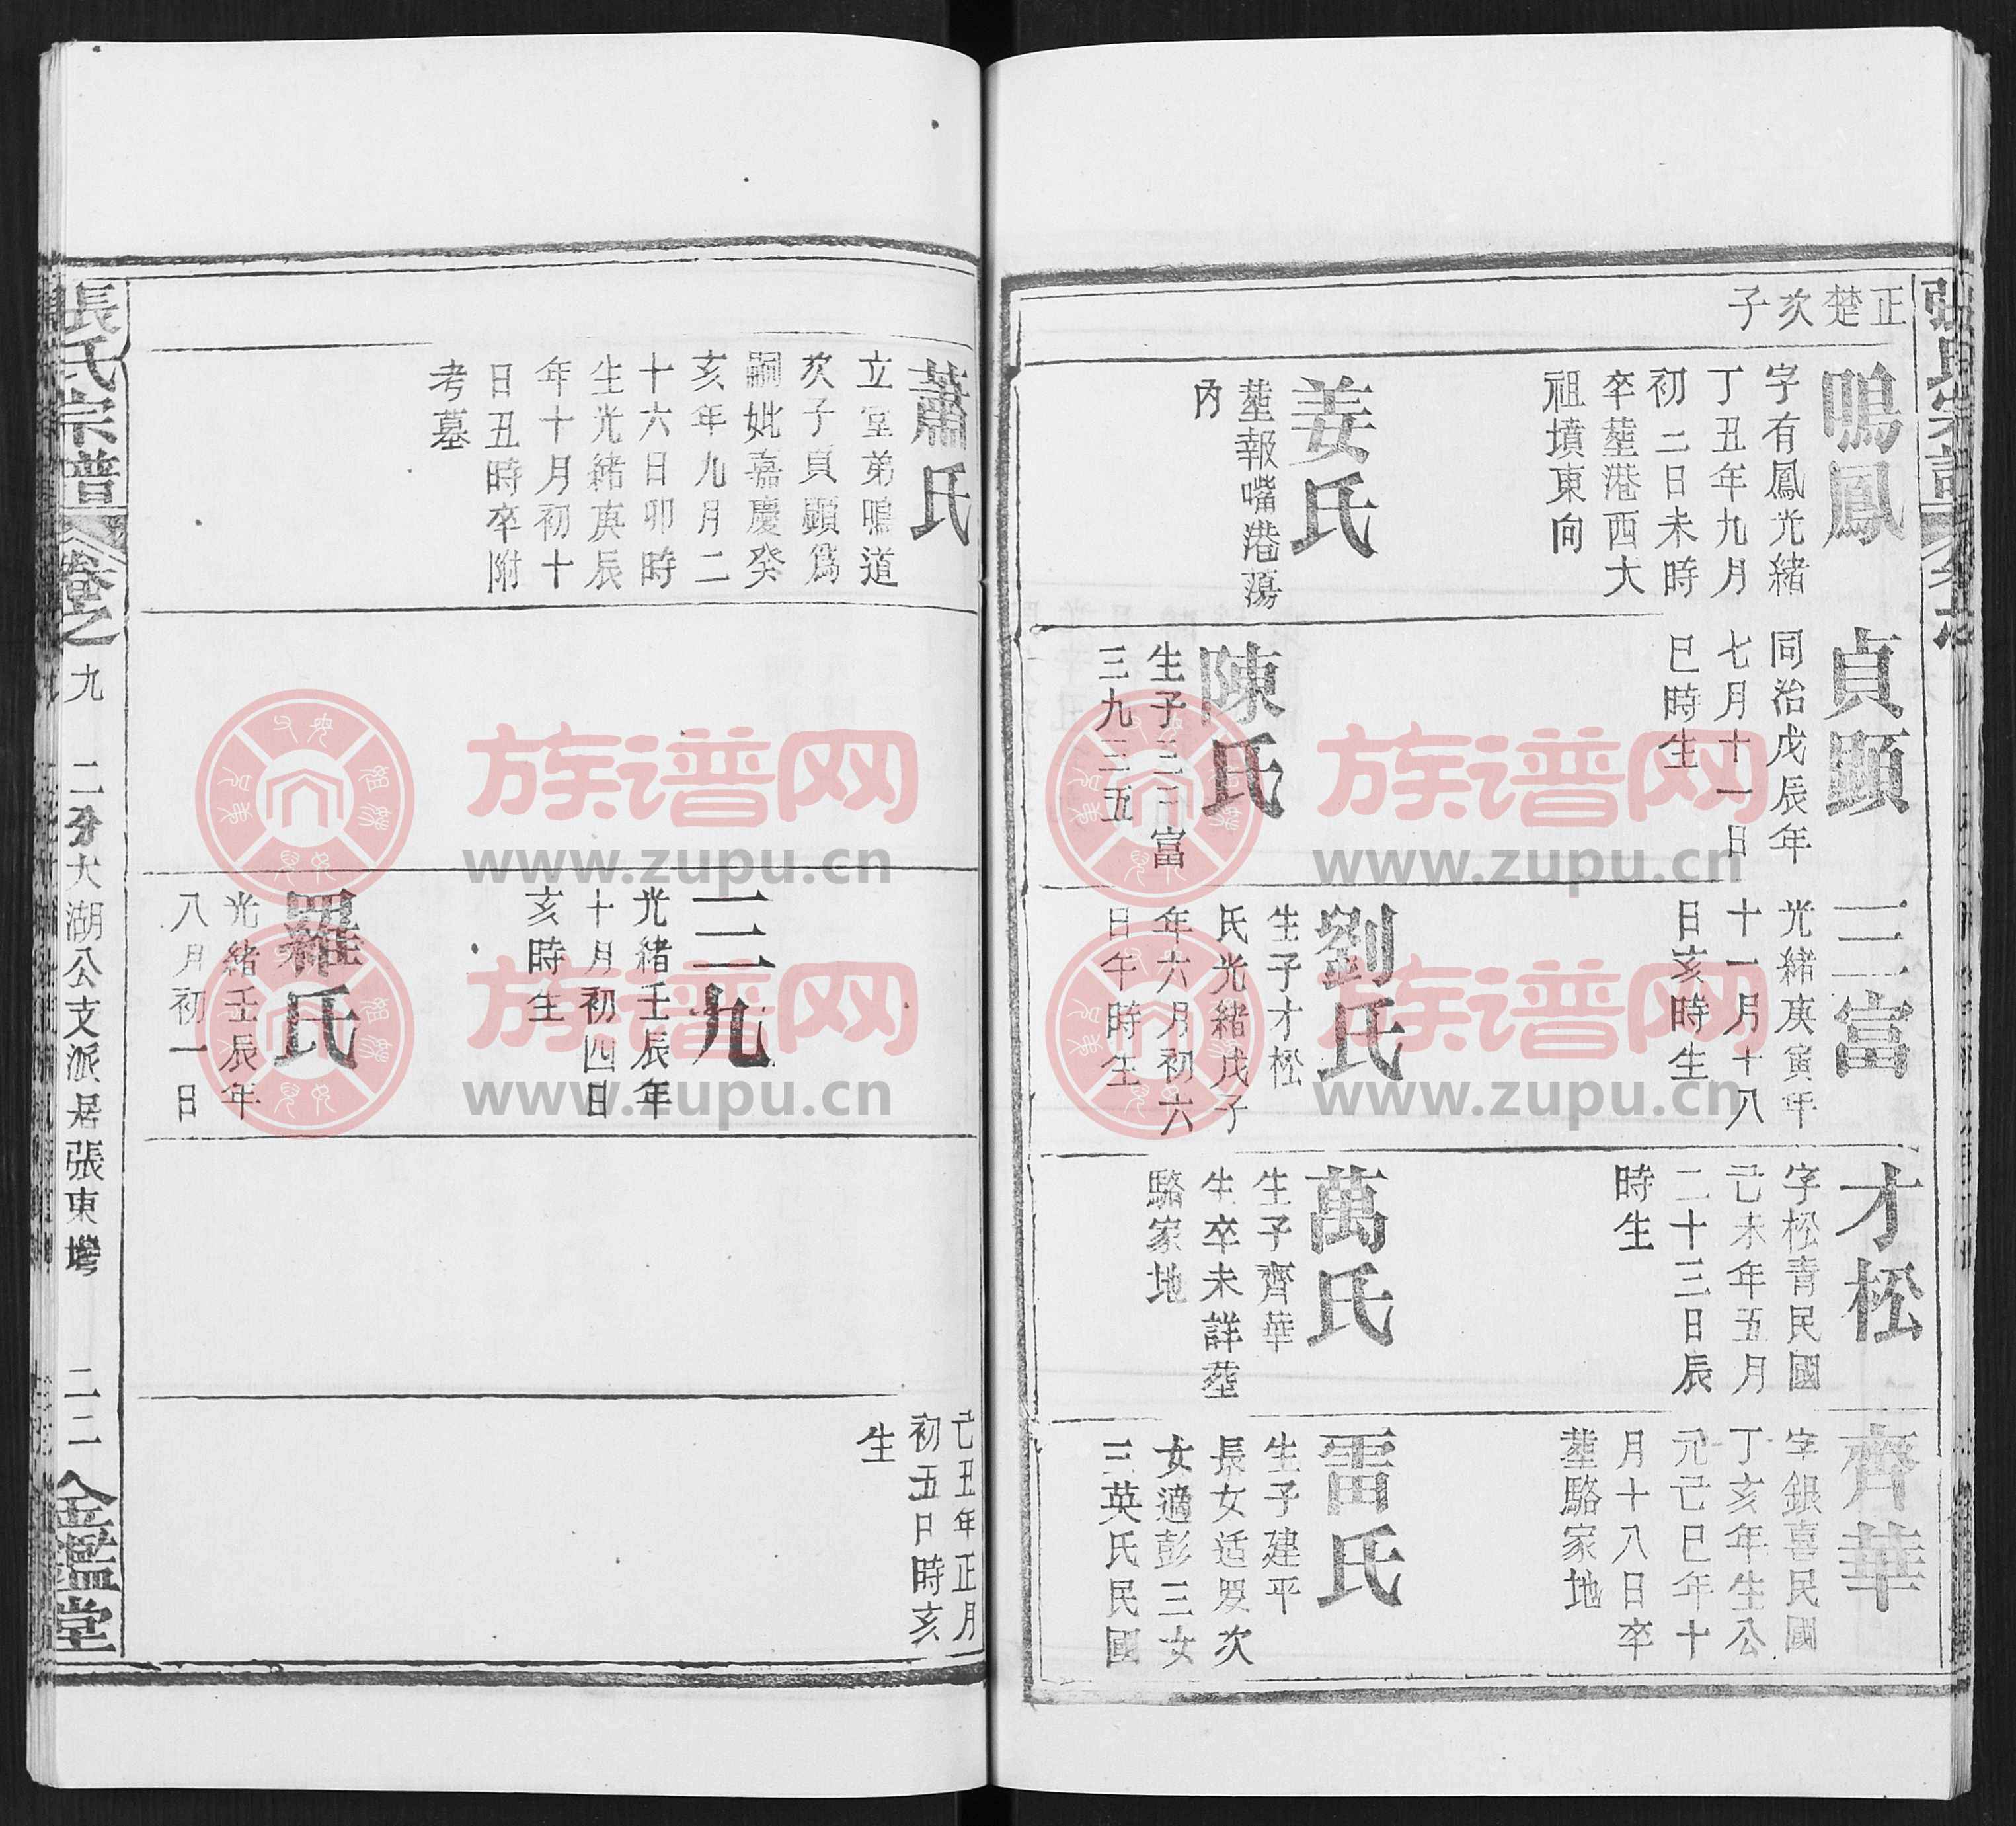 張氏宗譜
正楚次子
鳴鳳
字有鳳光緒
丁丑年九月
初二日未時
卒塟港西大
祖墳東向
姜氏
塟報嘴港蕩
內
貞顕
同治戊辰年
七月十一日
巳時生
陳氏
生子三三富
三九三五
三富
光緒庚寅年
十一月十八
日亥時生
劉氏
生子才松
氏光緒戊子
年六月初六
日午時生
才松
字松青民國
己未年五月
二十三日辰
時生
萬氏
生子齊華
生卒未詳塟
駱家地
齊華
字銀喜民國
丁亥年生公
元己巳年十
月十八日卒
塟駱家地
雷氏
生子建平
長女适罗次
女適彭三女
三英氏民國
蕭氏
立堂弟鳴道
次子貞顕為
嗣妣嘉慶癸
亥年九月二
十六日卯時
生光緒庚辰
年十月初十
日丑時卒附
考墓
三九
光緒壬辰年
十月初四日
亥時生
羅氏
光緒壬辰年
八月初一日
己丑年正月
初五日時亥
生
張氏宗譜 卷之九 二分大湖公支派居張東塆 二二 金鑑堂
族谱网
www.zupu.cn
族谱网
www.zupu.cn
族谱网
www.zupu.cn
族谱网
www.zupu.cn